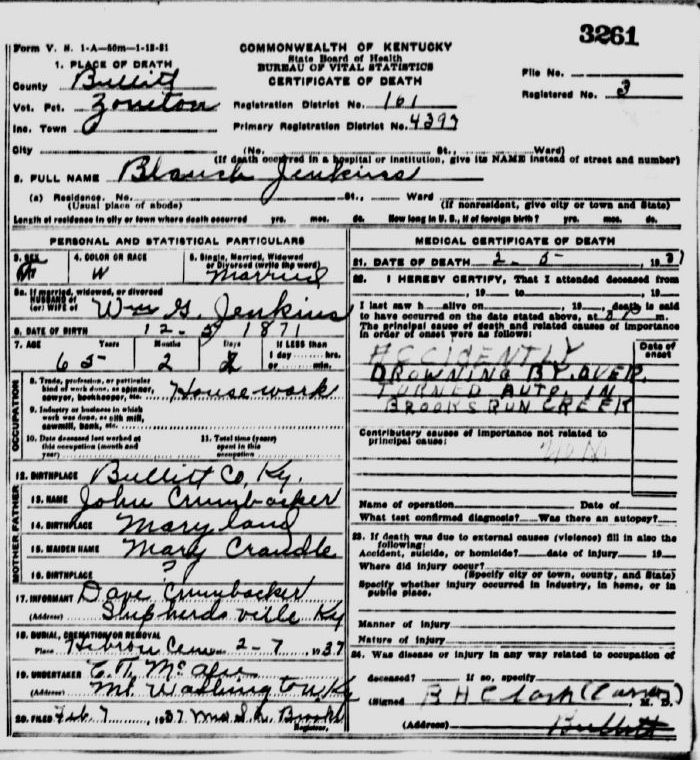 3261
Form V. S. 1-A—50m—1-13-31
COMMONWEALTH OF KENTUCKY
State Board of Health
BUREAU OF VITAL STATISTICS
CERTIFICATE OF DEATH
1. PLACE OF DEATH
County Bullitt
Vot. Pct. Zoneton
Inc. Town
File No.
Registered No. 3
Registration District No. 161
Primary Registration District No. 4397
City (No. St., Ward)
(If death occurred in a hospital or institution, give its NAME instead of street and number)
2. FULL NAME Blanch Jenkins
(a) Residence. No. St., Ward
(Usual place of abode) (If nonresident, give city or town and State)
Length of residence in city or town where death occurred yrs. mos. ds. How long in U. S., if of foreign birth? yrs. mos. ds.
PERSONAL AND STATISTICAL PARTICULARS
3. SEX
4. COLOR OR RACE W
5. Single, Married, Widowed or Divorced (write the word) Married
5a. If married, widowed, or divorced
HUSBAND of
(or) WIFE of Wm G. Jenkins
6. DATE OF BIRTH 12-5 1871
7. AGE Years Months Days If LESS than
65 2 1 day hrs.
or min.
OCCUPATION
8. Trade, profession, or particular kind of work done, as spinner, sawyer, bookkeeper, etc. Housework
9. Industry or business in which work was done, as silk mill, sawmill, bank, etc.
10. Date deceased last worked at this occupation (month and year)
11. Total time (years) spent in this occupation
12. BIRTHPLACE Bullitt Co, Ky.
FATHER
13. NAME John Crumbacker
14. BIRTHPLACE Maryland
MOTHER
15. MAIDEN NAME Mary Crandle
16. BIRTHPLACE ?
17. INFORMANT Dave Crumbacker
(Address) Shepherdsville Ky
18. BURIAL, CREMATION OR REMOVAL
Place Hebron Cem 2-7, 1937
19. UNDERTAKER McAfee
(Address) Mt. Washington, Ky
20. FILED Feb. 7, 1937 Mrs Brooks
Registrar.
MEDICAL CERTIFICATE OF DEATH
21. DATE OF DEATH 2 5, 19
22. I HEREBY CERTIFY, That I attended deceased from
, 19 to , 19
I last saw h alive on , 19 death is said
to have occurred on the date stated above, at m.
The principal cause of death and related causes of importance
in order of onset were as follows:
Date of onset
ACCIDENTLY
DROWNING BY OVER
TURNED AUTO IN
BROOKS RUN CREEK
Contributory causes of importance not related to
principal cause:
Name of operation Date of
What test confirmed diagnosis? Was there an autopsy?
23. If death was due to external causes (violence) fill in also the
following:
Accident, suicide, or homicide? date of injury 19
Where did injury occur?
(Specify city or town, county, and State)
Specify whether injury occurred in industry, in home, or in
public place.
Manner of injury
Nature of injury
24. Was disease or injury in any way related to occupation of
deceased? If so, specify
(Signed B H Clash , M. D.
(Address) Bullitt